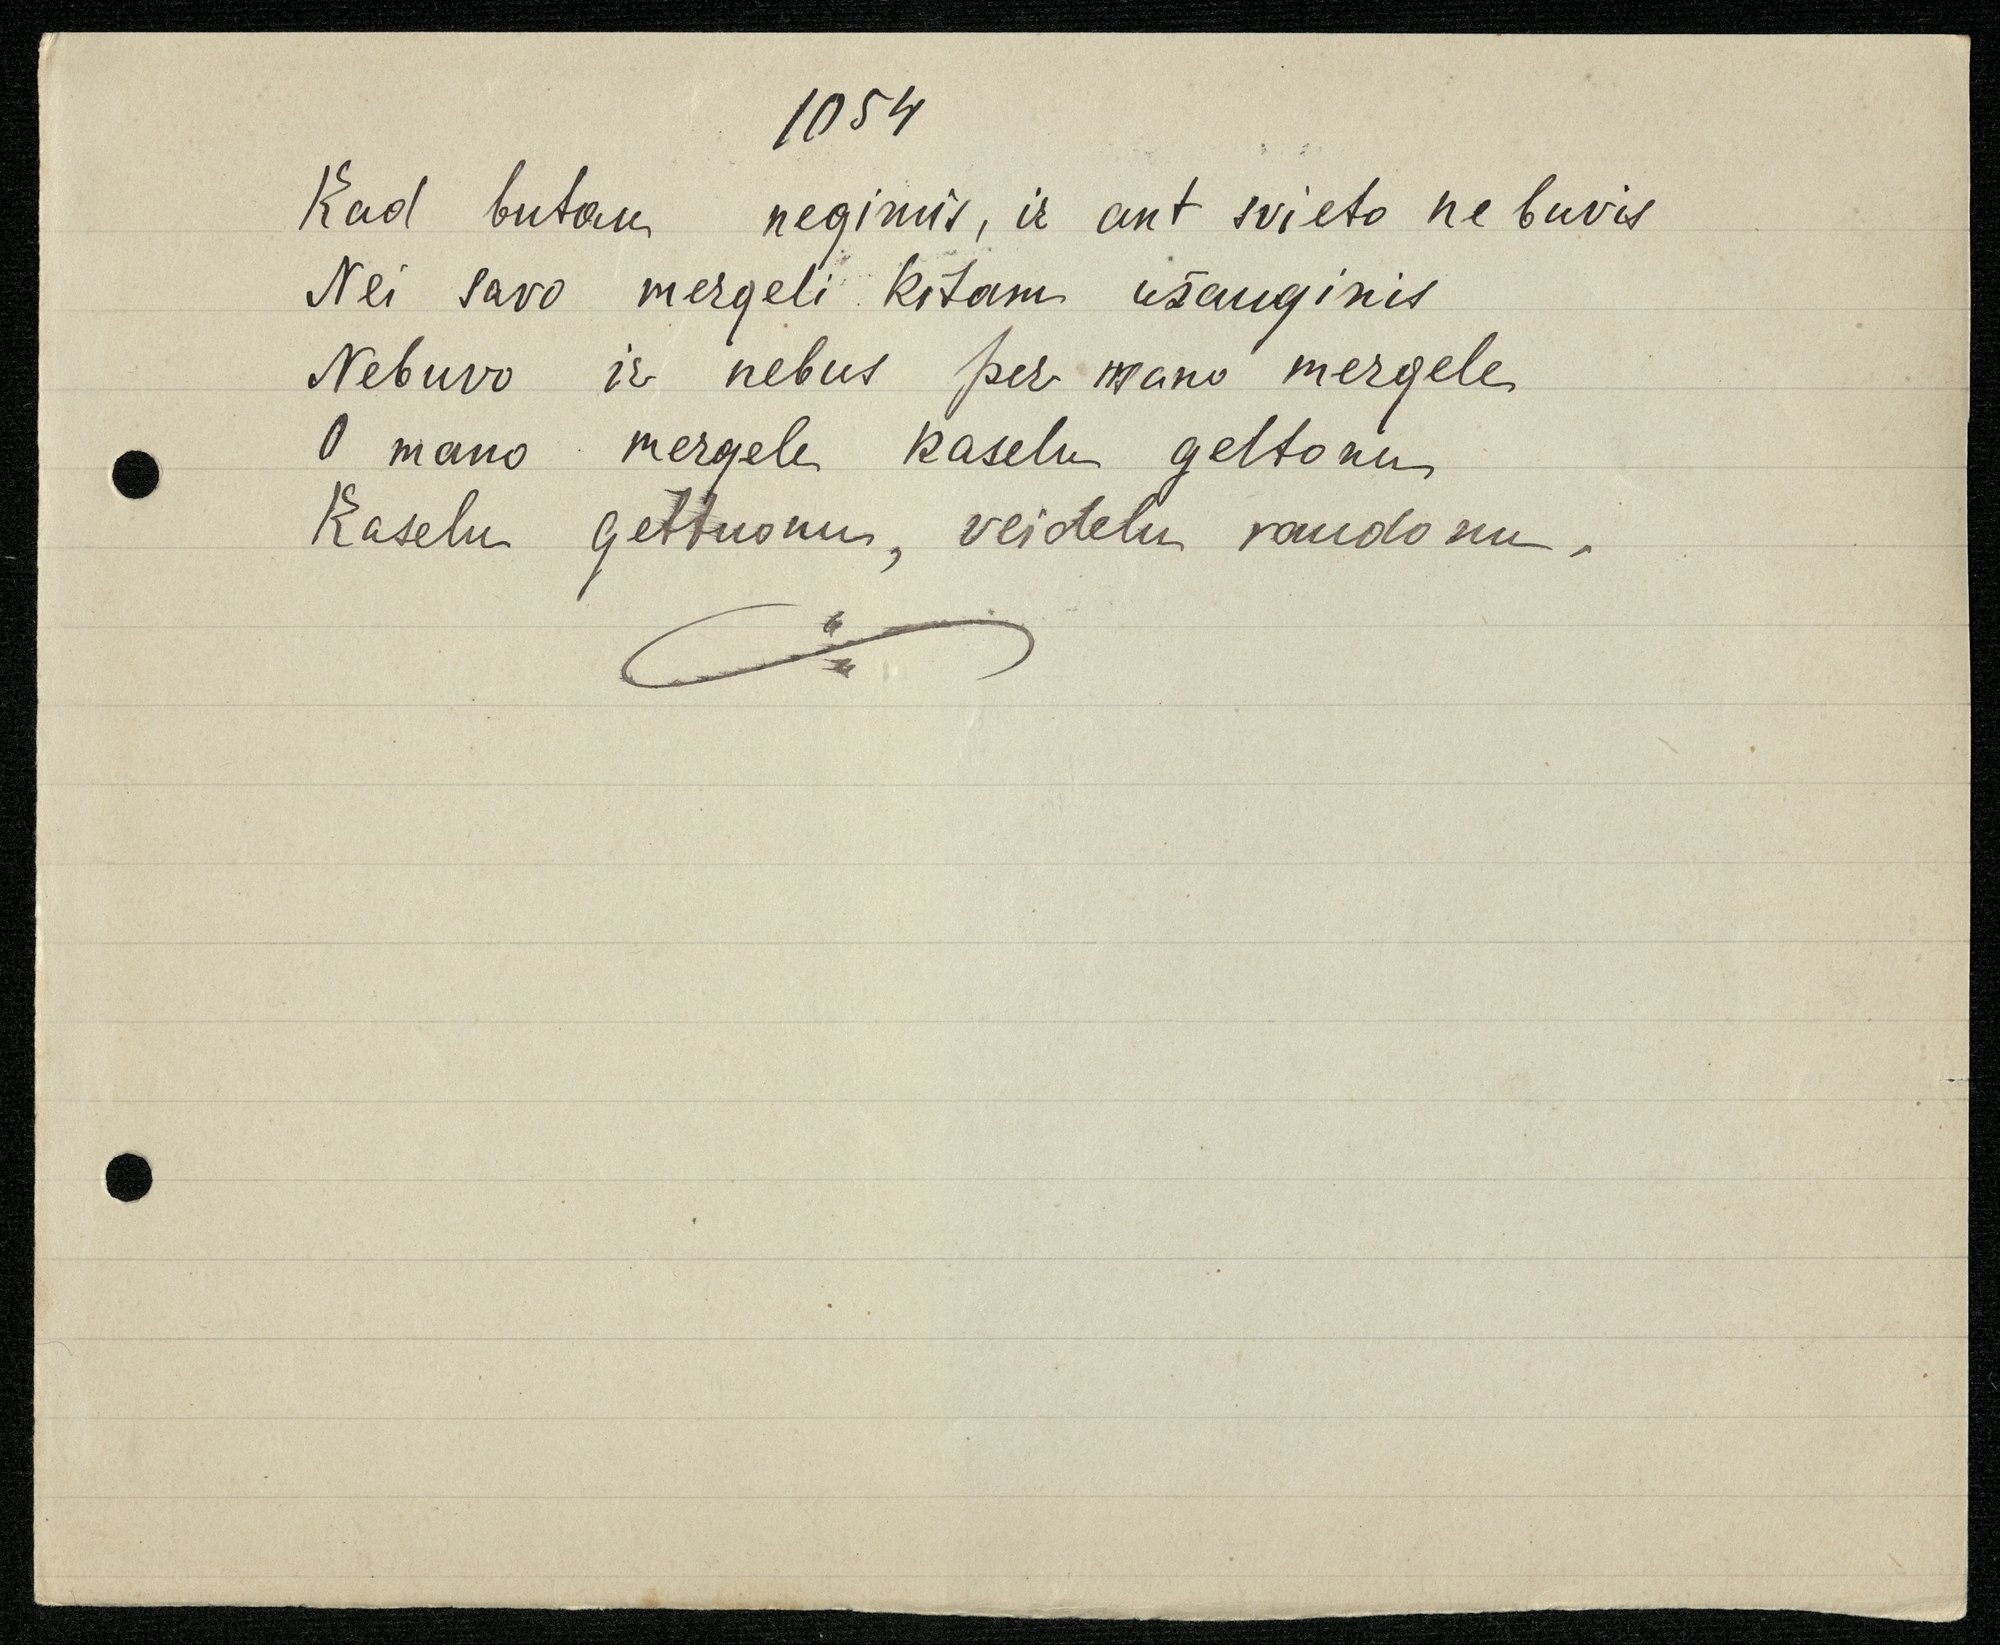 1054
Kad butau negimis, ir ant svieto ne buvis
Nei savo mergeli kitam užauginis
Nebuvo ir nebus per mano mergele
O mano mergele kaselu geltonu
Kaselu geltuonu, veidelu raudonu.